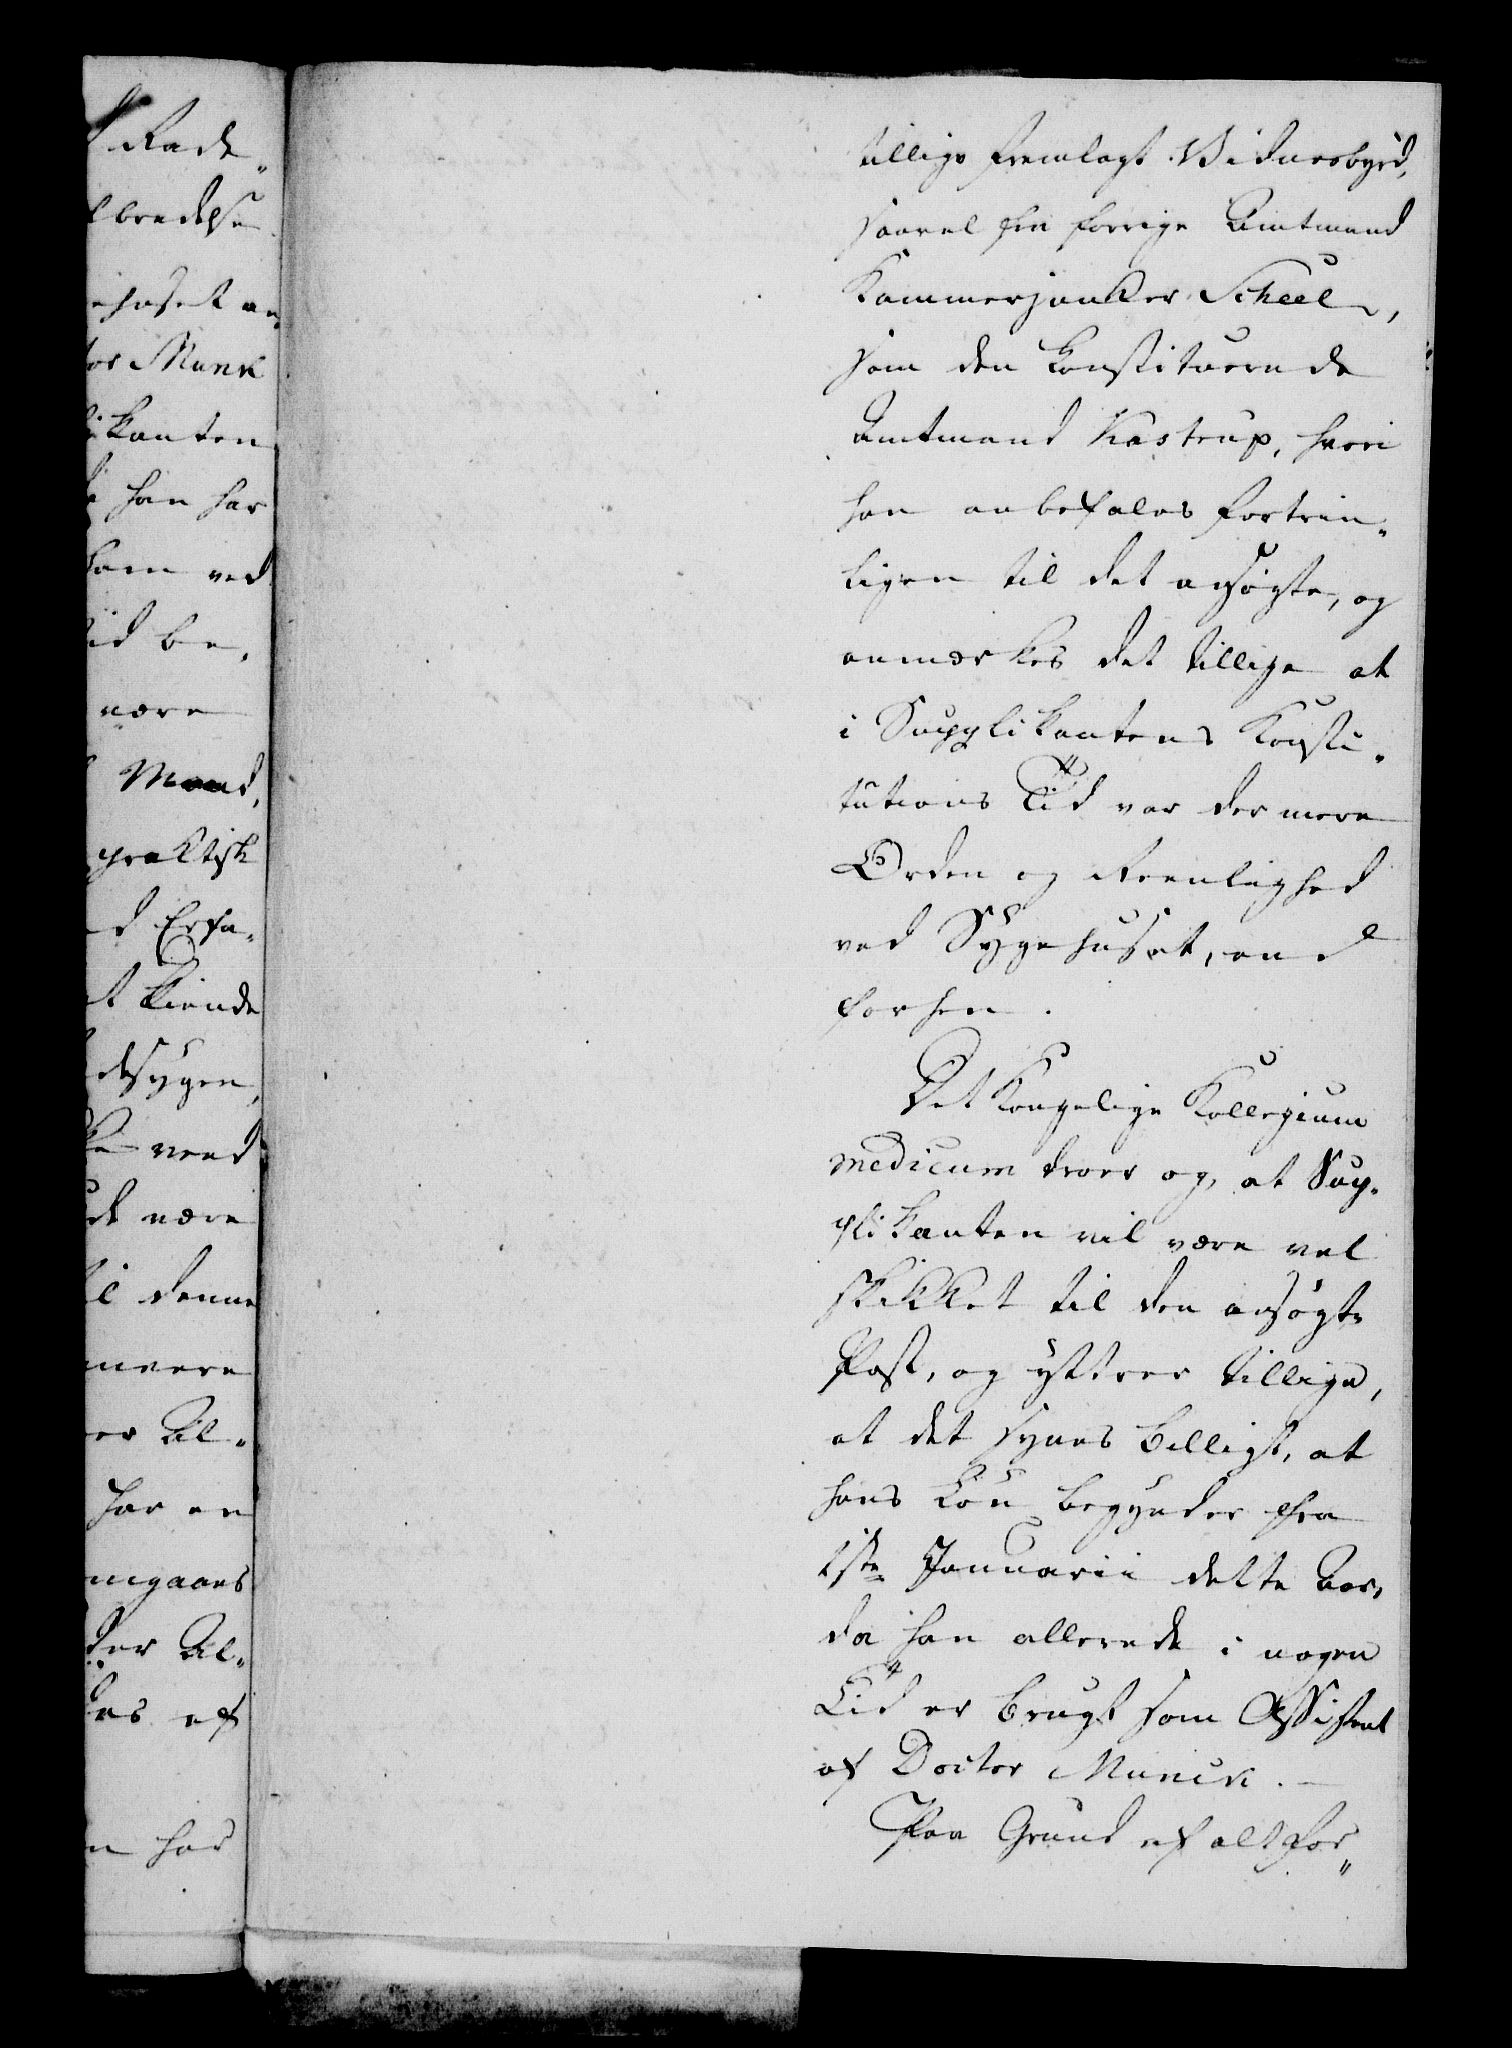 Rade„
bredelse
ehuset an„
tor Munk
likanten
han har
ham ved
id be„
være
Mand,
praktisk
d Erfa„
t kiende
dsygen,
ke ved
de være
il denne
meere
er Al„
har en
mgaaes
der Al„
es af
n har
tillige fremlagt Vidnesbyrd,
saavel fra forrige Amtmand
Kammerjunker Scheel,
som den konstituerede
Amtmand Kastrup, hvori
han anbefales fortrin„
ligen til det ansøgte, og
anmærkes det tillige at
i Supplikantens Konsti„
tutions Tid var der mere
Orden og Reenlighed
ved Sygehuset, end
forhen.
Det Kongelige Kollegium
medicum troer og, at Sup„
plikanten vil være vel
skikket til den ansøgte
Post, og yttrer tillige,
at det synes billigt, at
hans Løn begynder fra
1ste Januarii dette Aar,
da han allerede i nogen
Tid er brugt som Assistent
af Doctor Munck. —
Paa Grund af alt for„